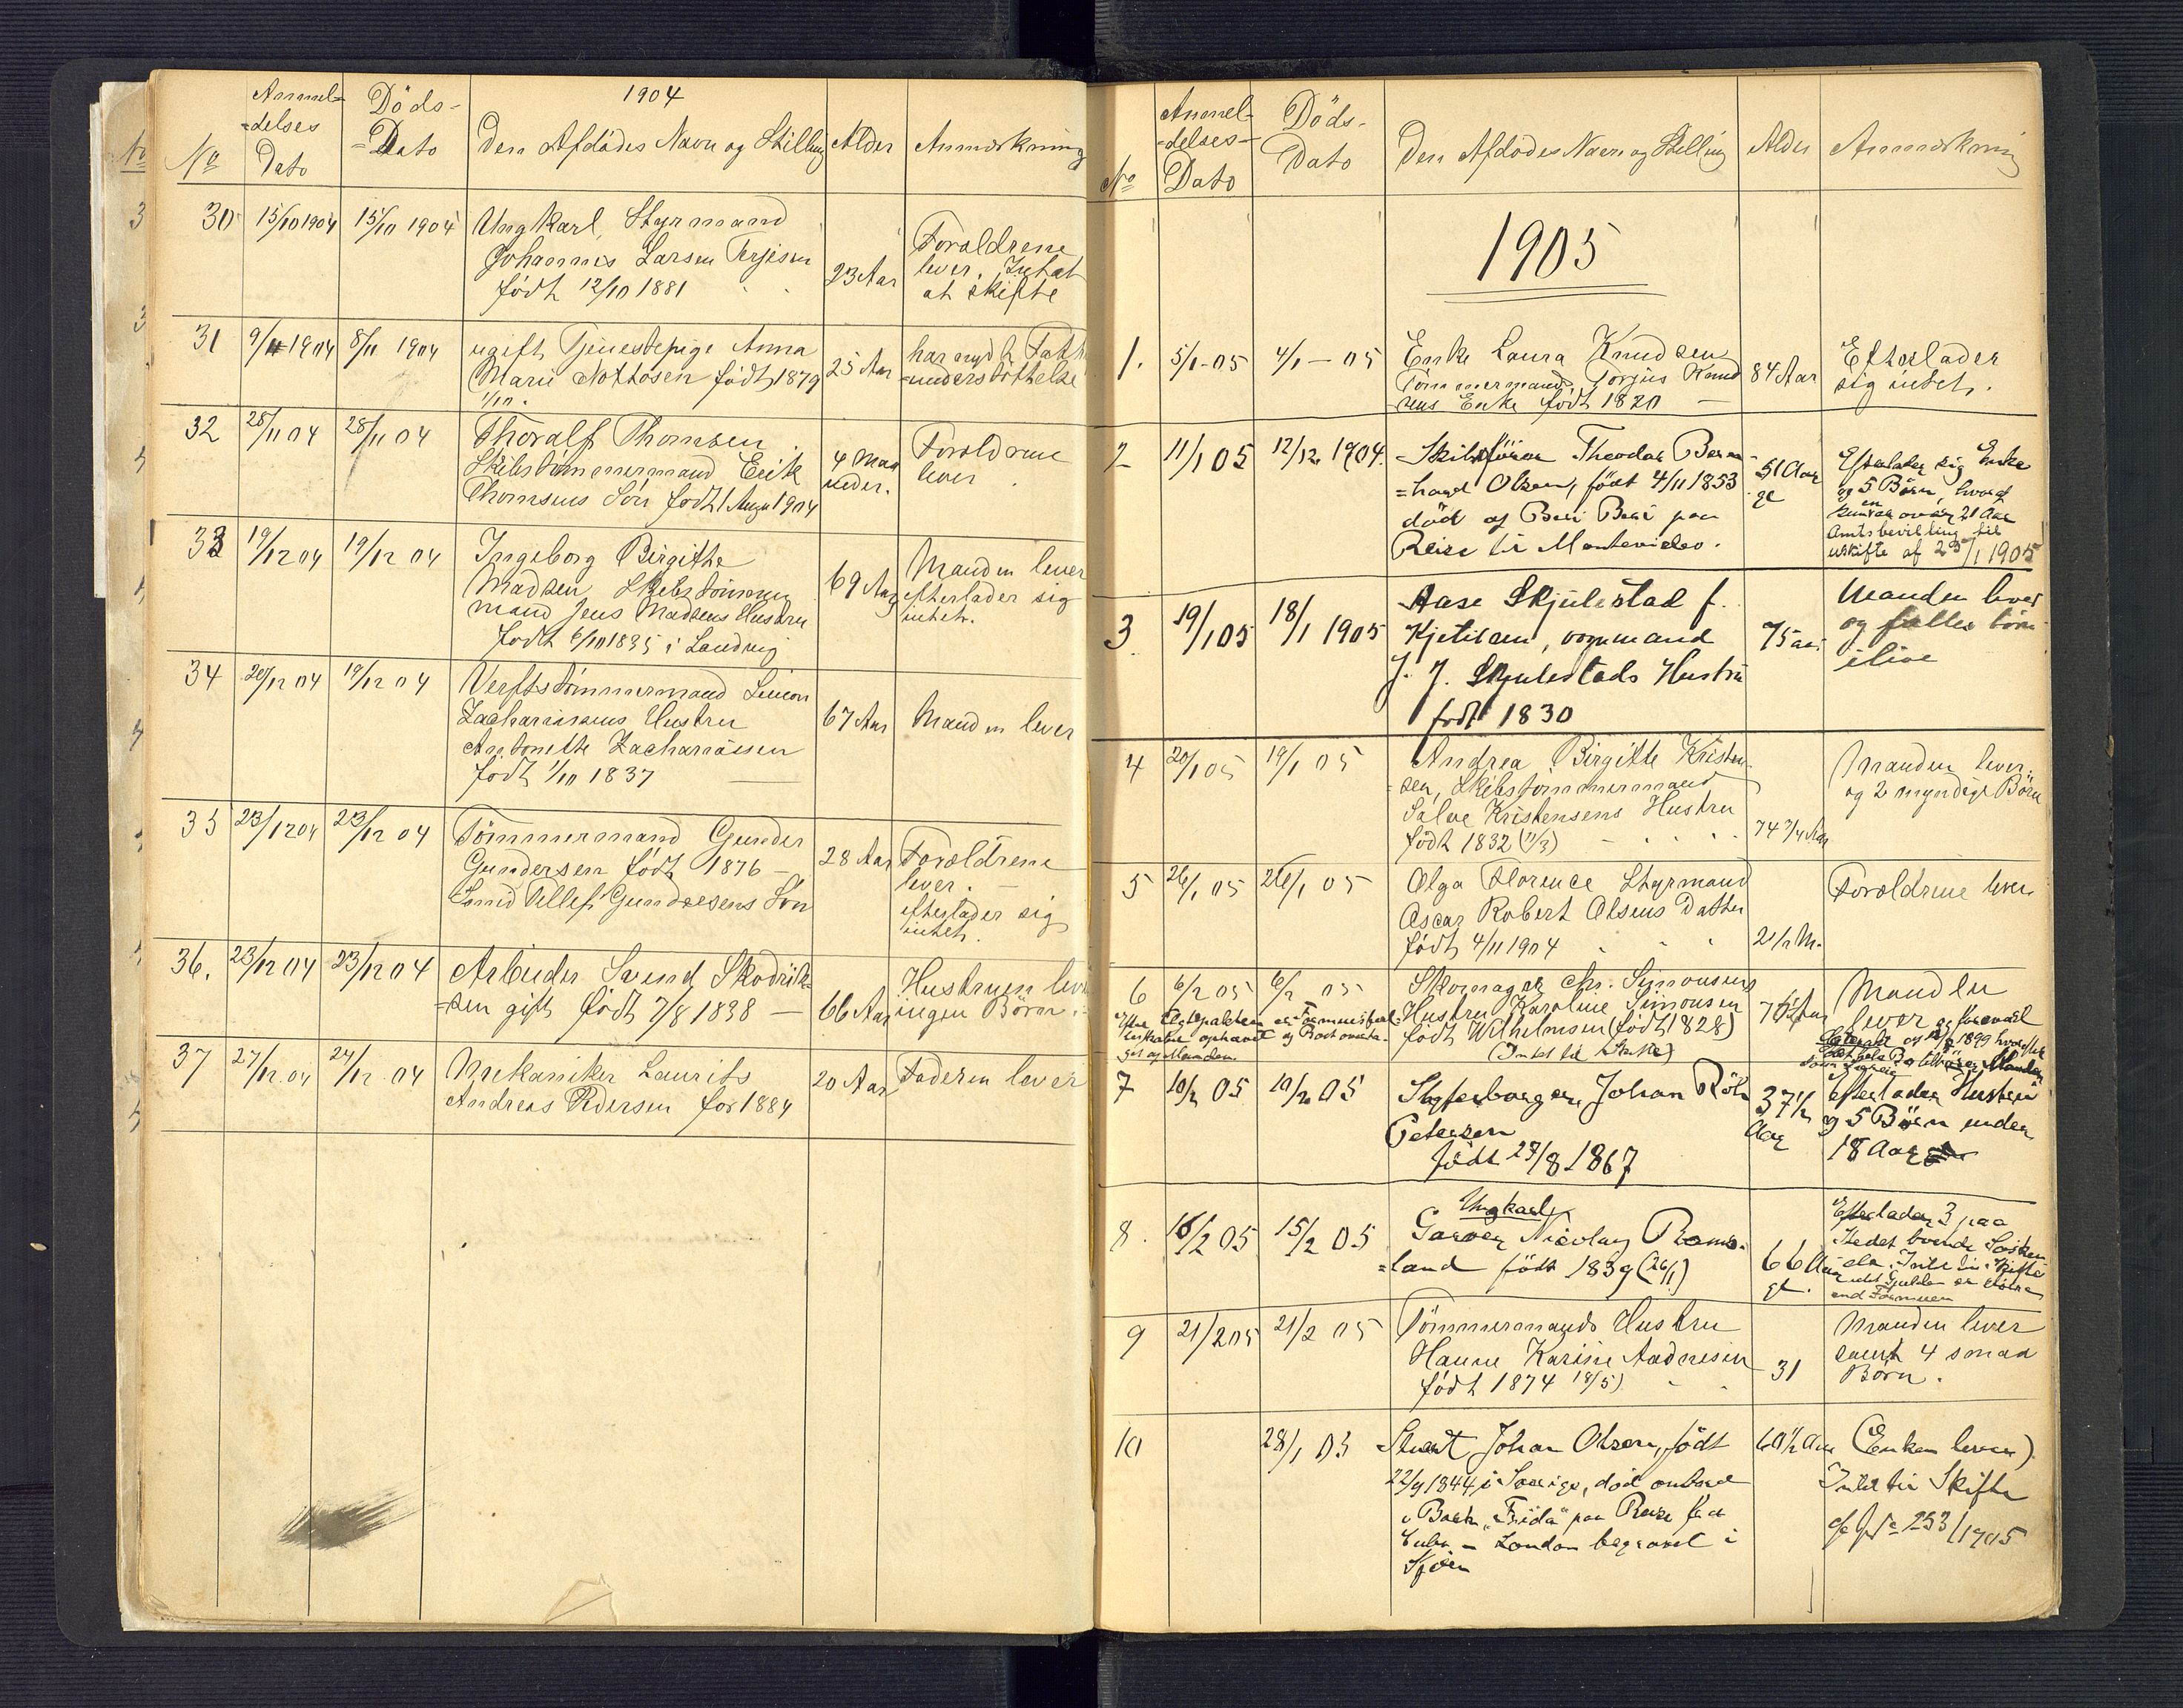 1904
No
Anmel-
=delses
Dato
Döds-
=Dato
Den Afdødes Navn og Stilling
Alder
Anmærkning
30
15/10 1904
15/10 1904
Ungkarl, Styrmand
Johannes Larsen Terjesen
født 12/10 1881
23 Aar
Forældrene
lever. Intet
at skifte
31
9/11 1904
8/11 1904
ugift Tjenestepige Anna
Marie Nottosen født 1879
1/10.
25 Aar
har nydt Fatt
=understøttelse
32
28/11 04
28/11 04
Thoralf Thomsen
Skibstømmermand Erik
Thomsens Søn født 1 Augu 1904
4 Maa
neder.
Forældrene
lever
33
19/12 04
19/12 04
Ingeborg Birgithe
Madsen, Skibstømmer
mand Jens Madsens Hustru
født 6/10 1835 i Landvig
69 Aar
Manden lever
efterlader sig
intet.
34
20/12 04
19/12 04
Verftstømmermand Simon
Zachariasens Hustru
Antonette Zachariassen
født 1/10 1837
67 Aar
Manden lever
35
23/12 04
23/12 04
Tømmermand Gunder
Gundersen født 1876 -
Smid Tellef Gundersens Søn
28 Aar
Forældrene
lever. -
efterlader sig
intet.
36.
23/12 04
23/12 04
Arbeider Svend
=sen gift født 7/8 1838 -
66 Aar
Hustruen lever
ingen Børn.
37
27/12 04
24/12 04
Mekaniker Laurits
Andreas Pedersen før 1884
20 Aar
Faderen lever
No
Anmel-
=delses-
Dato
Döds-
Dato
Den Afdødes Navn og Stilling
Alder
Anmærkning
1905
1.
5/1-05
4/1-05
Enke Laura Knudsen
Tømmermand Torjus Knud
sens Enke født 1820 -
84 Aar
Efterlader
sig intet.
2
11/1 05
12/12 1904.
Skibsfører Theodor Bern-
=hard Olsen, født 4/11 1853
död af Beri Beri paa
Reise til Montevideo.
51 Aar
gl
Efterlader sig Enke
og 5 Børn, hvoraf
kun en over 21 Aar
Amtsbevilling til
uskifte af 25/1 1905
3
19/1 05
18/1 1905
Aase Skjulestad f.
Kjetilsen, vognmand
J. J. Skjulestads Hustru
født 1830
75 aar
Manden lever
og fælles børn
ilive
4
20/1 05
19/1 05
Andrea Birgitte Kristen-
sen, Skibstømmermand
Salve Kristensens Hustru
født 1832 (11/3)
74 3/4 Aar
Manden lever.
og 2 myndige Børn
5
26/1 05
26/1 05
Olga Florence Styrmand
Oscar Robert Olsens Datter
født 4/11 1904
2 1/2 M.
Forældrene lever
6
6/2 05
6/2 05
Skomager Chr. Simonsens
Hustru Karoline Simonsen
født Wilhelmsen (født 1828)
(Intet til Skifte)
Manden
lever
7
10/2 05
10/2 05
Johan
Petersen
født 27/8 1867
37 1/2
Aar
Efterlader Hustru
og 5 Børn under
18 Aar
8.
16/2 05
15/2 05
Ungkarl
Garver Nicolay Roms-
=land født 1839 (26/1)
66 Aar
gl.
Efterlader 3 paa
Stedet boende Søsken-
de. Intet til Skifte
idet Gjælden er større
end Formuen
9
21/2 05
21/2 05
Tømmermands Hustru
Hanne Karine Aadnesen
født 1874 18/5)
31
Manden lever
samt 4 smaa
Børn.
10
28/1 05
Stuert Johan Olsen, født
22/9 1844 i Sverige, död ombord
i Bark "Frida" paa Reise fra
Cuba - London begravet i
Sjøen
60 1/2 Aar
(Enken lever)
Intet til Skifte
cfr J No 253/1905